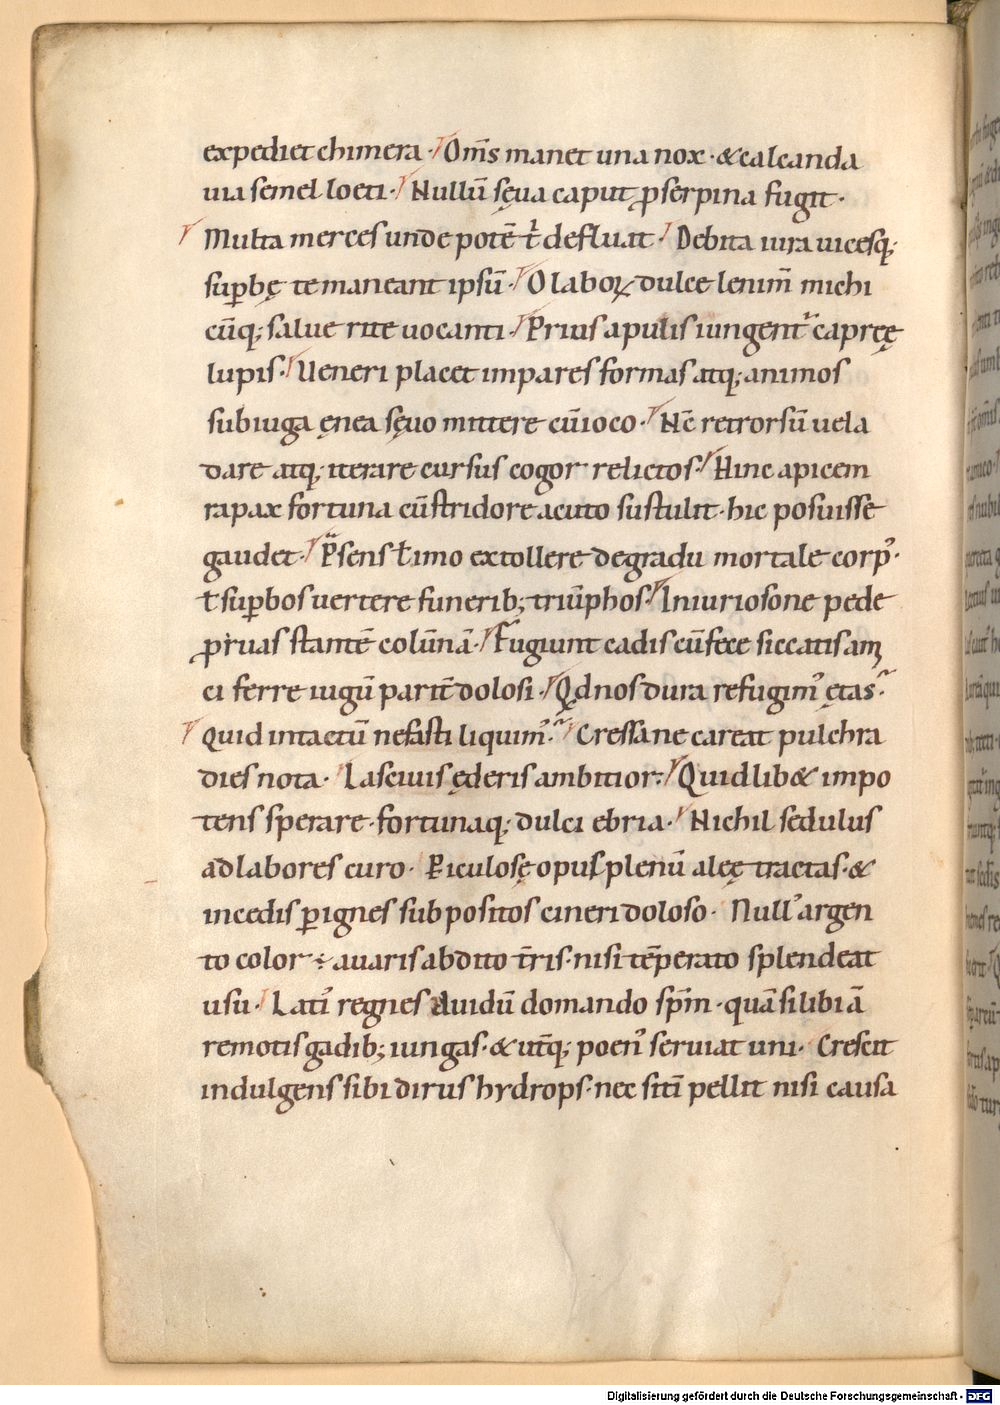 expediet chimera · Om̅s manet una nox · & calcanda
uia semel loeti · Nullū sęua caput ꝓserpina fugit ·
Multa merces unde potē t̄ defluat · Debita iura uicesq;
supbę te maneant ipsū · O laboꝝ dulce lenim̅ michi
cūq; salue rite uocanti · Prius apulis iungent᷑ capreę
lupis · Ueneri placet impares formas atq; animos
sub iuga ęnea sęuo mittere cū ioco · Nc̄ retrorsū uela
dare atq; iterare cursus cogor relictos · Hinc apicem
rapax fortuna cū stridore acuto sustulit · hic posuisse
gaudet · P̄sens t̄ imo extollere de gradu mortale corpꝰ ·
t̄ supbos uertere funerib; triūphos · Iniurioso ne pede
ꝓruas stantē colūnā · Fugiunt cadis cū fece siccatis am
ci ferre iugū parit̄ dolosi · Qd nos dura refugimꝰ ętas ·
Quid intactū nefasti liquimꝰ · Cressa ne careat pulchra
dies nota · Lasciuis ęderis ambitior · Quid lib& impo
tens sperare · fortunaq; dulci ebria · Nichil sedulus
ad labores curo · Piculosę opus plenū aleę tractas · &
incedis ꝑ ignes subpositos cineri doloso · Nullꝰ argen
to color ÷ auaris abdito t̄ris · nisi tēperato splendeat
usu · Latiꝰ regnes auidū domando spm̅ · quā si libiā
remotis gadib; iungas · & ut̄q; poenꝰ seruiat uni · Crescit
indulgens sibi dirus hydrops · nec sitī pellit nisi causa
Digitalisierung gefördert durch die Deutsche Forschungsgemeinschaft - DFG